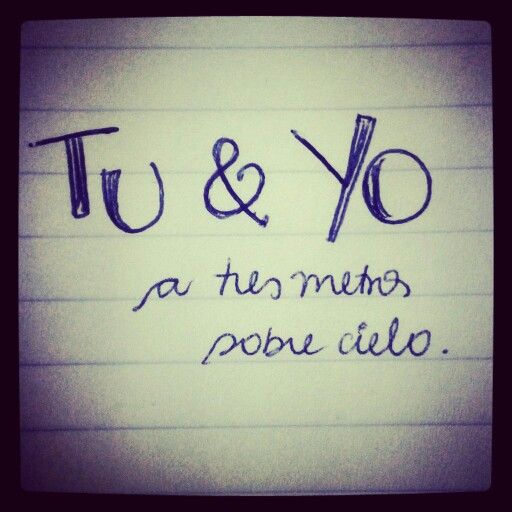 TU & YO
a tres metros
sobre cielo.